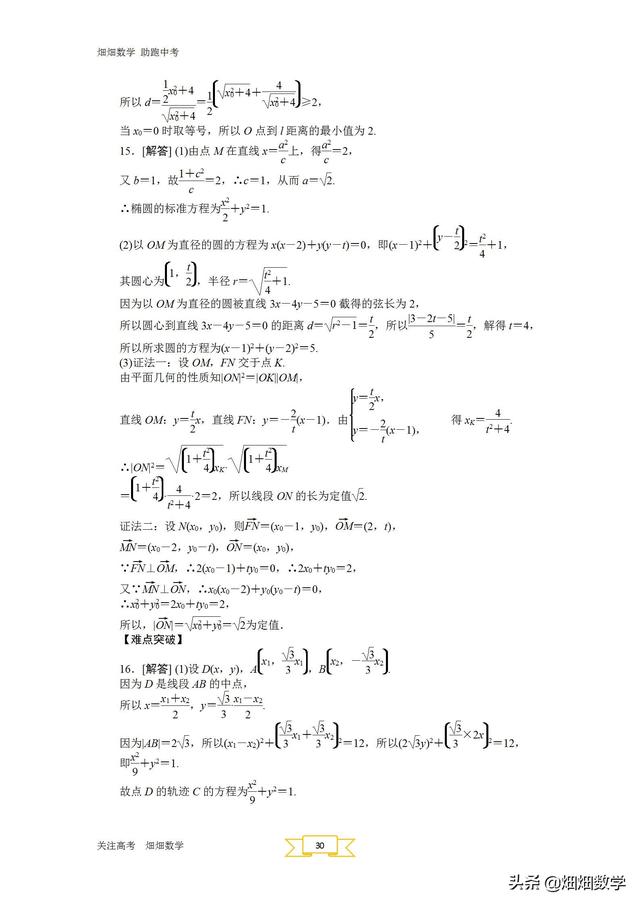 畑畑数学 助跑中考
所以 d=(1/2x₀²+4)/√(x₀²+4)=1/2(√(x₀²+4)+4/√(x₀²+4))≥2,
当 x₀=0 时取等号，所以 O 点到 l 距离的最小值为 2.
15．[解答] (1)由点 M 在直线 x=a²/c上，得a²/c=2,
又 b=1，故(1+c²)/c=2，∴c=1，从而 a=√2.
∴椭圆的标准方程为x²/2+y²=1.
(2)以 OM 为直径的圆的方程为 x(x-2)+y(y-t)=0，即(x-1)²+(y-t/2)²=t²/4+1,
其圆心为(1，t/2)，半径 r=√(t²/4+1).
因为以 OM 为直径的圆被直线 3x-4y-5=0 截得的弦长为 2,
所以圆心到直线 3x-4y-5=0 的距离 d=√(r²-1)=t/2，所以|3-2t-5|/5=t/2，解得 t=4,
所以所求圆的方程为(x-1)²+(y-2)²=5.
(3)证法一：设 OM，FN 交于点 K.
由平面几何的性质知|ON|²=|OK||OM|,
直线 OM：y=t/2x，直线 FN：y=-2/t(x-1)．由{y=t/2x, y=-2/t(x-1), 得 xK=4/(t²+4).
∴|ON|²=√(1+t²/4)xK·√(1+t²/4)xM
=(1+t²/4)·4/(t²+4)·2=2，所以线段 ON 的长为定值√2.
证法二：设 N(x₀，y₀)，则FN→=(x₀-1，y₀)，OM→=(2，t),
MN→=(x₀-2，y₀-t)，ON→=(x₀，y₀),
∵FN→⊥OM→，∴2(x₀-1)+ty₀=0，∴2x₀+ty₀=2,
又∵MN→⊥ON→，∴x₀(x₀-2)+y₀(y₀-t)=0,
∴x₀²+y₀²=2x₀+ty₀=2,
所以，|ON→|=√(x₀²+y₀²)=√2为定值．
【难点突破】
16．[解答] (1)设 D(x，y)，A(x₁，√3/3x₁)，B(x₂，-√3/3x₂).
因为 D 是线段 AB 的中点,
所以 x=(x₁+x₂)/2，y=√3/3·(x₁-x₂)/2.
因为|AB|=2√3，所以(x₁-x₂)²+(√3/3x₁+√3/3x₂)²=12，所以(2√3y)²+(√3/3×2x)²=12,
即x²/9+y²=1.
故点 D 的轨迹 C 的方程为x²/9+y²=1.
关注高考 畑畑数学
30
头条 @畑畑数学